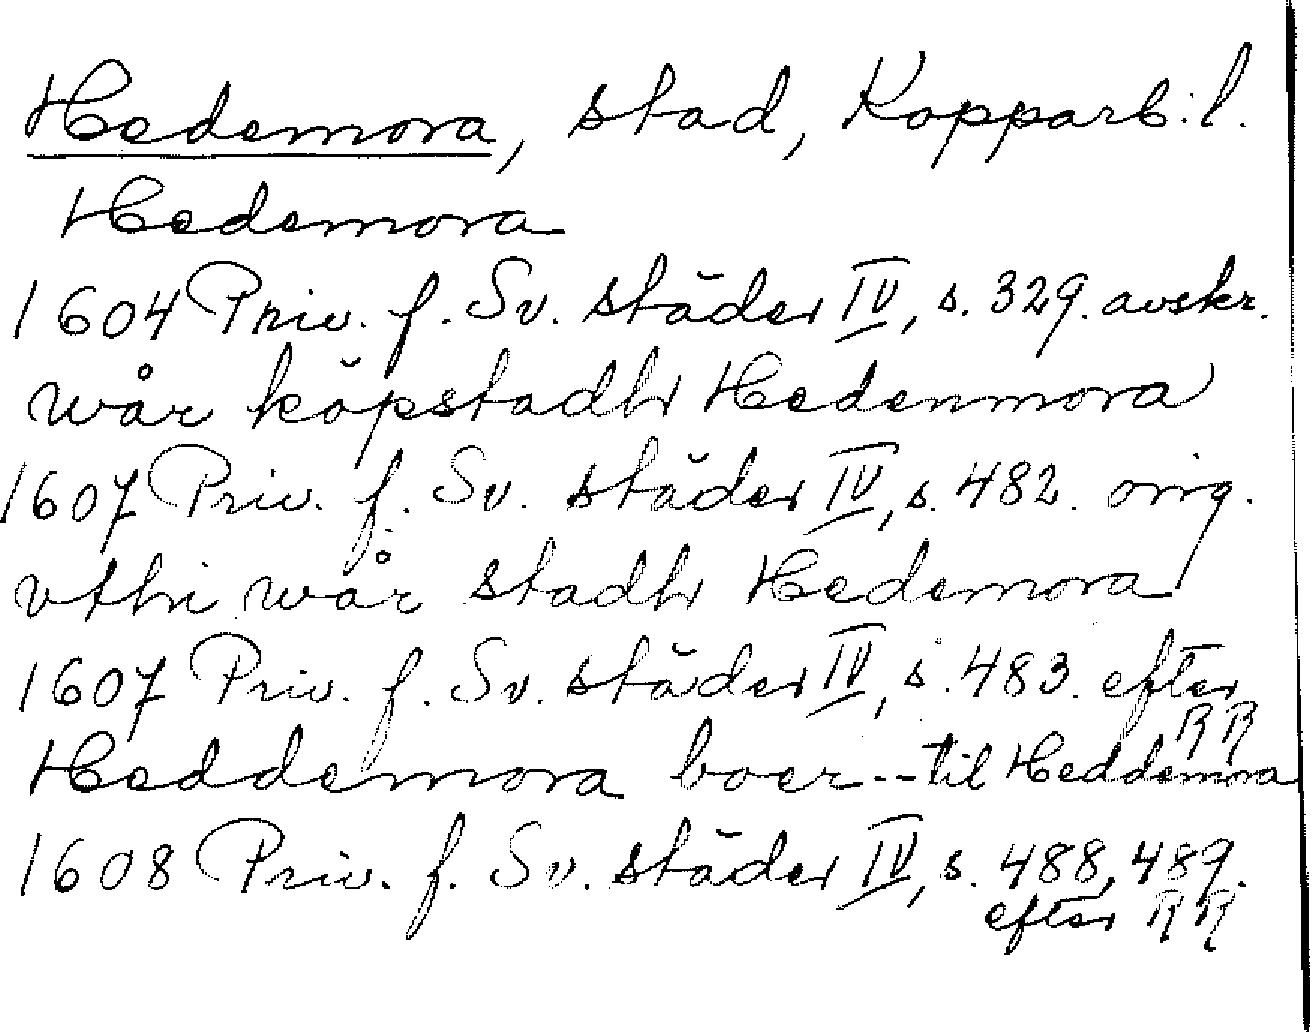 Hedemora, stad, Kopparb. l.
Hedemora
1604 Priv. f. Sv. städer IV, s. 329. avskr.
wår köpstadh Hedenmora
1607 Priv. f. Sv. städer IV, s. 482. orig.
vthi wår stadh Hedemora
1607 Priv. f. Sv. städer IV, s. 483. efter RR
Heddemora boer --- til Heddemora
1608 Priv. f. Sv. städer IV, s. 488, 489.
efter RR